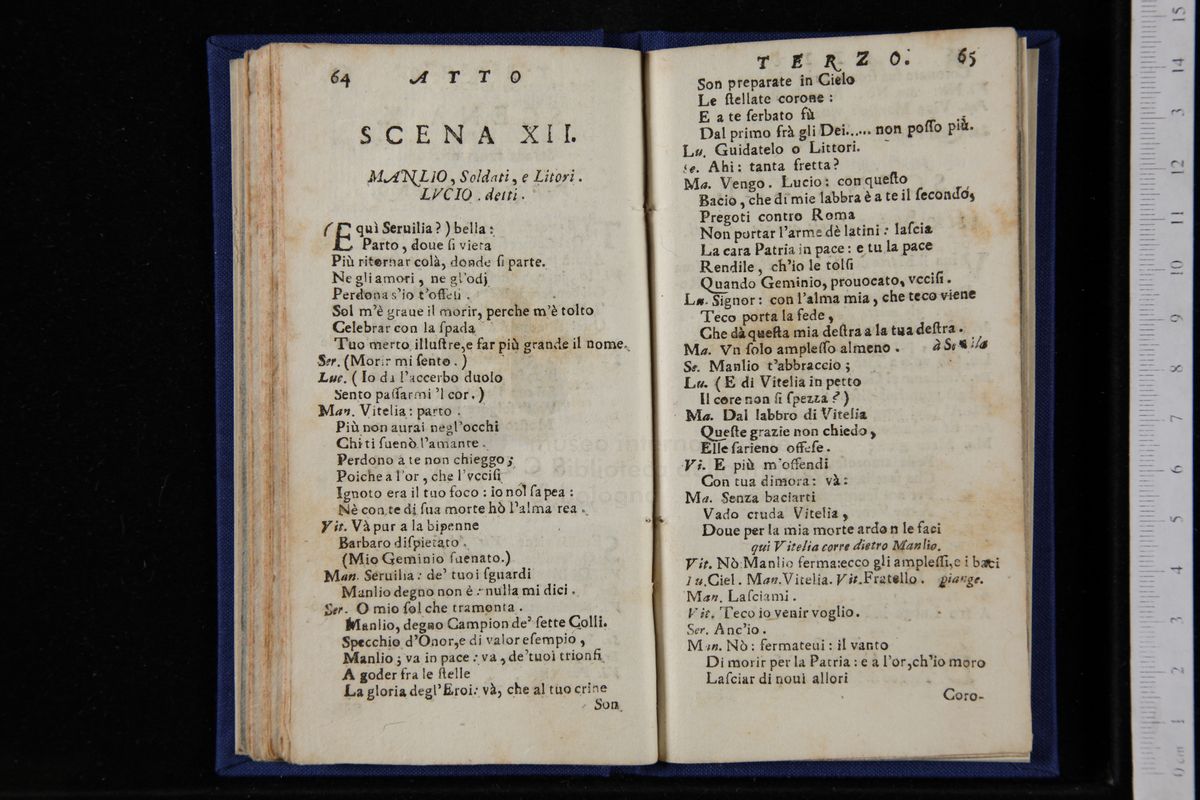 64 ATTO
SCENA XII.
MANLIO, Soldati, e Litori.
LVCIO. detti.
(E quì Seruilia?) bella:
Parto, doue ſi vieta
Più ritornar colà, donde ſi parte.
Ne gli amori, ne gl'odj
Perdona s'io t'offeſi.
Sol m'è graue il morir, perche m'è tolto
Celebrar con la ſpada
Tuo merto illuſtre, e far più grande il nome.
Ser. (Morir mi ſento.)
Luc. (Io da l'accerbo duolo
Sento paſſarmi 'l cor.)
Man. Vitelia: parto.
Più non aurai negl'occhi
Chi ti ſuenò l'amante.
Perdono a te non chieggo;
Poiche a l'or, che l'vcciſi
Ignoto era il tuo foco: io nol ſapea:
Nè con te di ſua morte hò l'alma rea.
Vit. Và pur a la bipenne
Barbaro diſpietato.
(Mio Geminio ſuenato.)
Man. Seruilia: de' tuoi ſguardi
Manlio degno non è: nulla mi dici.
Ser. O mio ſol che tramonta.
Manlio, degno Campion de' ſette Colli.
Specchio d'Onor, e di valor eſempio,
Manlio; va in pace: va, de' tuoi trionfi
A goder fra le ſtelle
La gloria degl'Eroi: và, che al tuo crine
Son
TERZO. 65
Son preparate in Cielo
Le ſtellate corone:
E a te ſerbato fù
Dal primo frà gli Dei...... non poſſo più.
Lu. Guidatelo o Littori.
Se. Ahi: tanta fretta?
Ma. Vengo. Lucio: con queſto
Bacio, che di mie labbra è a te il ſecondo,
Pregoti contro Roma
Non portar l'arme dè latini: laſcia
La cara Patria in pace: e tu la pace
Rendile, ch'io le tolſi
Quando Geminio, prouocato, vcciſi.
Lu. Signor: con l'alma mia, che teco viene
Teco porta la fede,
Che dà queſta mia deſtra a la tua deſtra.
Ma. Vn ſolo ampleſſo almeno. à
Se. Manlio t'abbraccio;
Lu. (E di Vitelia in petto
Il core non ſi ſpezza?)
Ma. Dal labbro di Vitelia
Queſte grazie non chiedo,
Elle ſarieno offeſe.
Vi. E più m'offendi
Con tua dimora: và:
Ma. Senza baciarti
Vado cruda Vitelia,
Doue per la mia morte ardon le faci
qui Vitelia corre dietro Manlio.
Vit. Nò Manlio ferma: ecco gli ampleſſi, e i baci
Lu. Ciel. Man. Vitelia. Vit. Fratello. piange.
Man. Laſciami.
Vit. Teco io venir voglio.
Ser. Anc'io.
Man. Nò: fermateui: il vanto
Di morir per la Patria: e a l'or, ch'io moro
Laſciar di nouì allori
Coro-